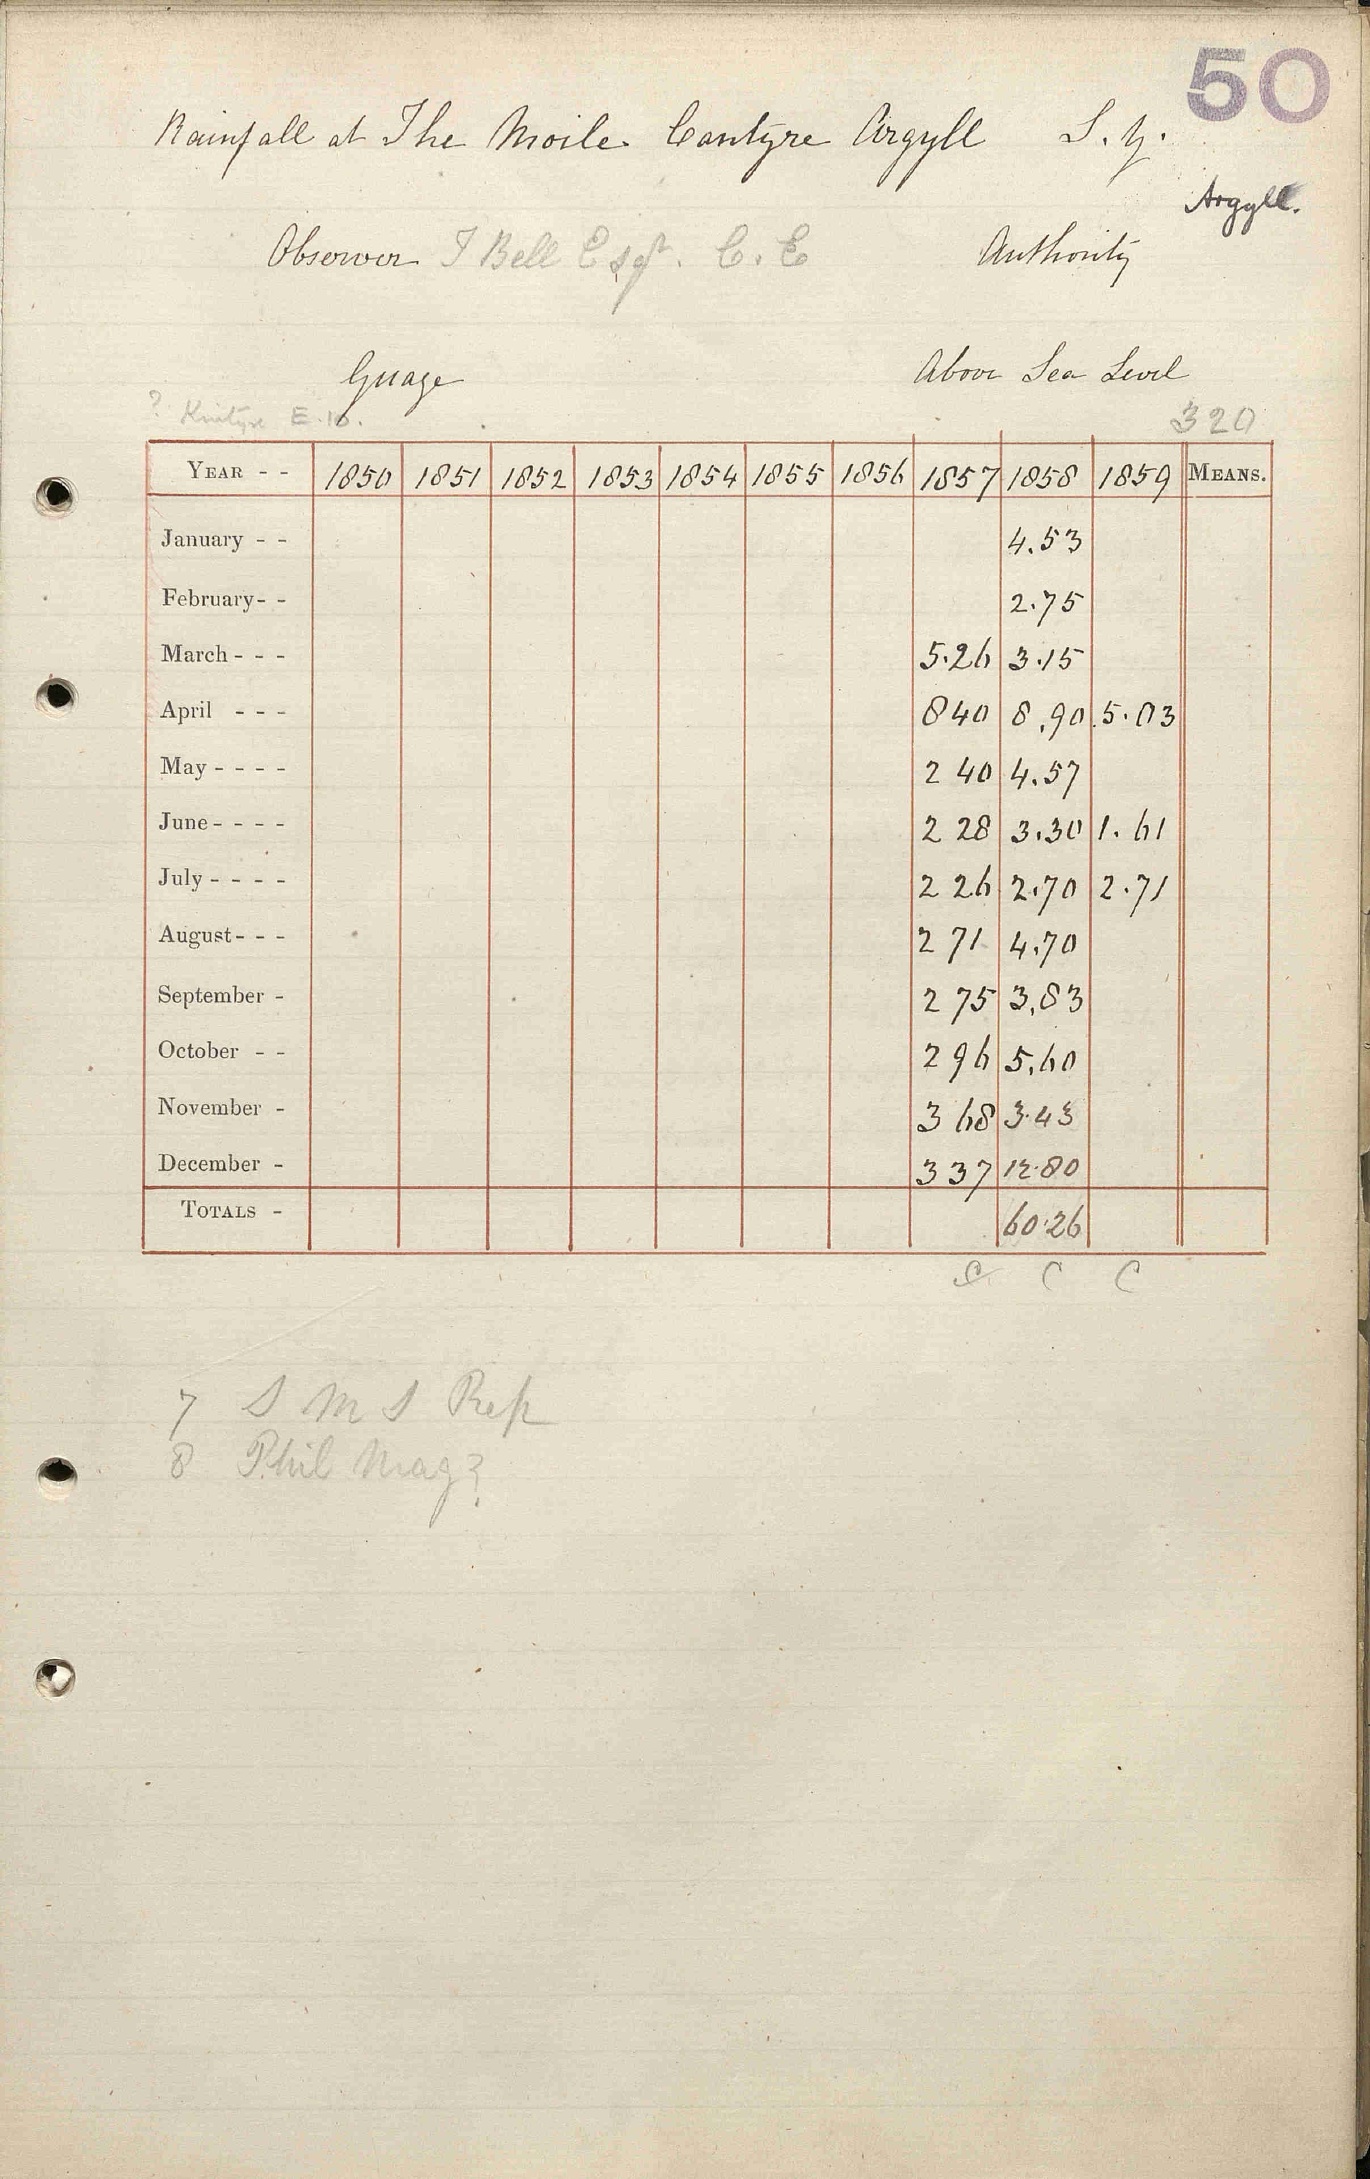 50
Rainfall at The Moile Cantyre Argyll S. Y.
Argyll.
Observer T Bell Esqr. C. E Authority
Guage Above Sea Level
? Kintyre E.10. 320
YEAR - - 1850 1851 1852 1853 1854 1855 1856 1857 1858 1859 MEANS.
January - - 4.53
February- - 2.75
March - - - 5.26 3.15
April - - - 8 40 8.90 5.03
May - - - - 2 40 4.57
June - - - - 2 28 3.30 1.61
July - - - - 2 26 2.70 2.71
August - - - 2 71 4.70
September - 2 75 3.83
October - - 2 96 5.60
November - 3 68 3.43
December - 3 37 12.80
TOTALS - 60.26
C C C
7 S M S Rep
8 Phil Mag?